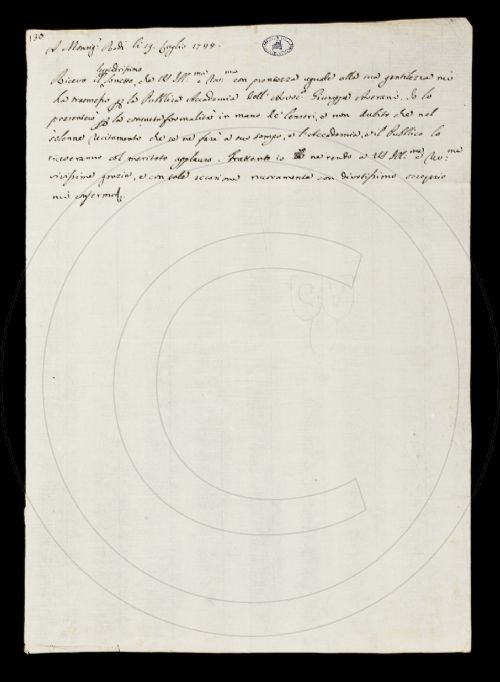 130
A Monsig.r Rodi li 19. Luglio 1788.
leggiadrissimo
Ricevo il Sonetto, che VS Ill.ma e Rev.ma con prontezza uguale alla sua gentilezza mi
ha trasmesso p la Pubblica Accademia dell' Giuseppe Io lo
presenterò p la consueta formalità in mano de' Censori, e non dubito che nel
solenne recitamento che se ne farà a suo tempo, e l'Accademia, e il Pubblico lo
riceveranno col meritato applauso. Frattanto io ne rendo a VS Ill.ma e Rev.ma
vivissime grazie, e con tale occasione nuovamente con divotissimo ossequio
mi confermo.